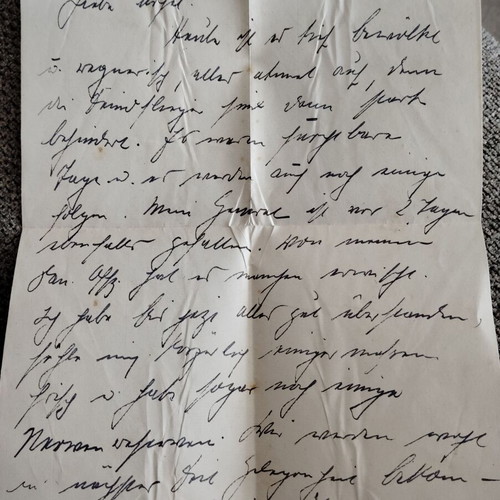 Liebe
Heute ist es tief bewölkt
u. regnerisch, alles atmet auf, denn
die Feindflieger sind dann stark
behindert. Es waren furchtbare
Tage u. es werden auch noch einige
folgen. Mein General ist vor 2 Tagen
ebenfalls gefallen. Von meinen
San. Offz. hat es manchen erwischt.
Ich habe bis jezt alles gut überstanden,
fühle mich körperlich einigermaßen
frisch u. habe sogar noch einige
Nervenreserven. Wir werden wohl
in nächster Zeit Gelegenheit bekom-